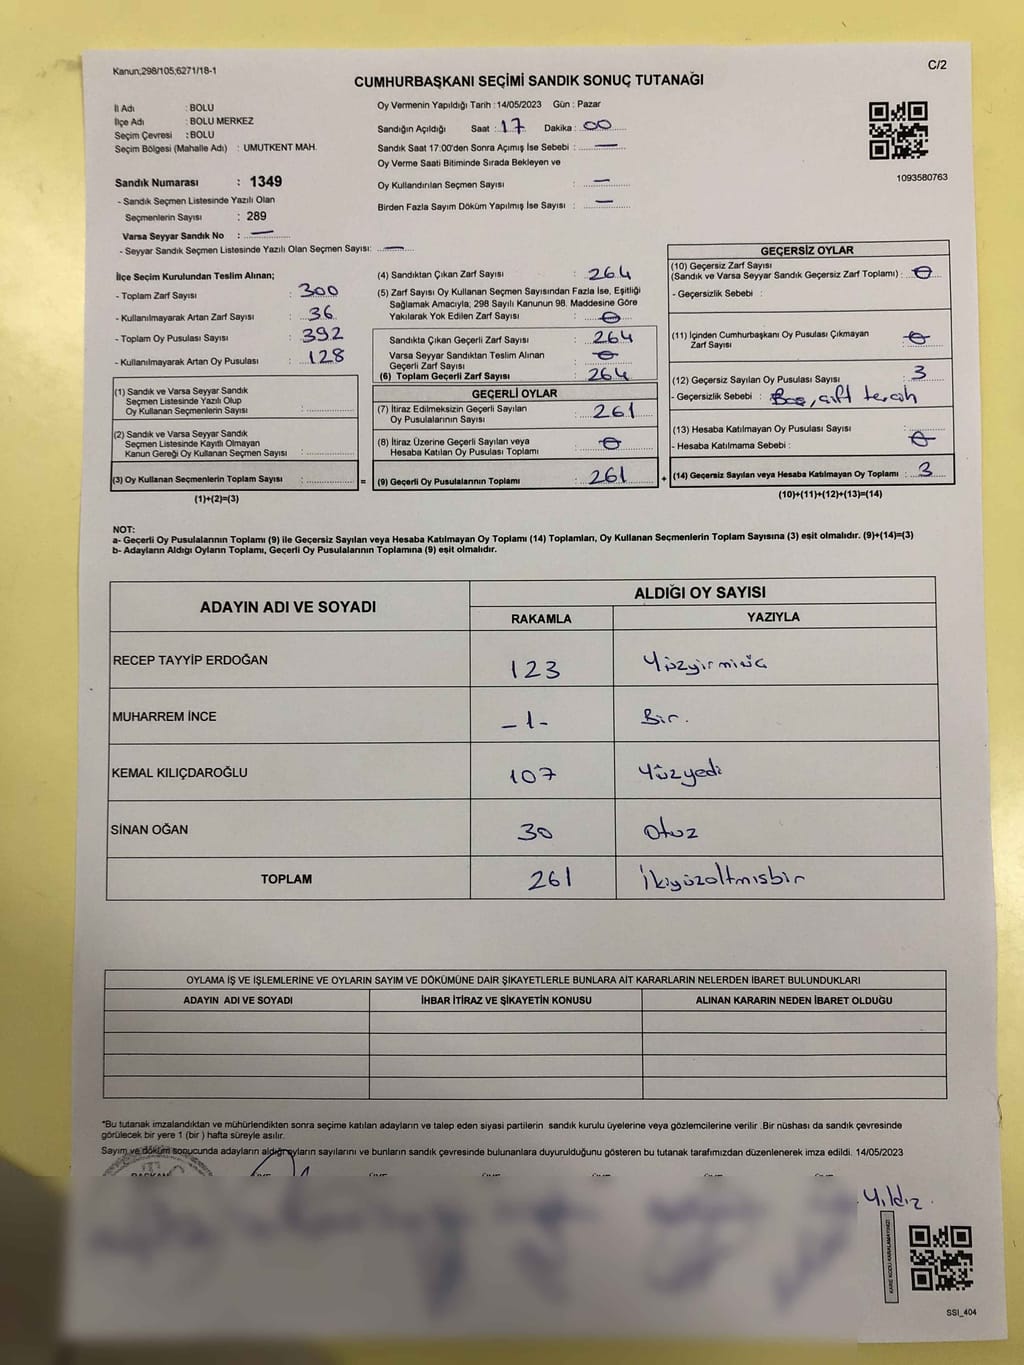 Kanun;298/105;6271/18-1
C/2
CUMHURBAŞKANI SEÇİMİ SANDIK SONUÇ TUTANAĞI
İl Adı : BOLU
İlçe Adı : BOLU MERKEZ
Seçim Çevresi : BOLU
Seçim Bölgesi (Mahalle Adı) : UMUTKENT MAH.
Sandık Numarası : 1349
- Sandık Seçmen Listesinde Yazılı Olan
Seçmenlerin Sayısı : 289
Varsa Seyyar Sandık No : —
- Seyyar Sandık Seçmen Listesinde Yazılı Olan Seçmen Sayısı: —
Oy Vermenin Yapıldığı Tarih : 14/05/2023 Gün : Pazar
Sandığın Açıldığı Saat : 17 Dakika : 00
Sandık Saat 17:00'den Sonra Açımış İse Sebebi : —
Oy Verme Saati Bitiminde Sırada Bekleyen ve
Oy Kullandırılan Seçmen Sayısı : —
Birden Fazla Sayım Döküm Yapılmış İse Sayısı : —
1093580763
İlçe Seçim Kurulundan Teslim Alınan;
- Toplam Zarf Sayısı : 300
- Kullanılmayarak Artan Zarf Sayısı : 36
- Toplam Oy Pusulası Sayısı : 392
- Kullanılmayarak Artan Oy Pusulası : 128
(1) Sandık ve Varsa Seyyar Sandık
Seçmen Listesinde Yazılı Olup
Oy Kullanan Seçmenlerin Sayısı :
(2) Sandık ve Varsa Seyyar Sandık
Seçmen Listesinde Kayıtlı Olmayan
Kanun Gereği Oy Kullanan Seçmen Sayısı :
(3) Oy Kullanan Seçmenlerin Toplam Sayısı : =
(1)+(2)=(3)
(4) Sandıktan Çıkan Zarf Sayısı : 264
(5) Zarf Sayısı Oy Kullanan Seçmen Sayısından Fazla İse, Eşitliği
Sağlamak Amacıyla; 298 Sayılı Kanunun 98. Maddesine Göre
Yakılarak Yok Edilen Zarf Sayısı : 0
Sandıkta Çıkan Geçerli Zarf Sayısı : 264
Varsa Seyyar Sandıktan Teslim Alınan
Geçerli Zarf Sayısı : 0
(6) Toplam Geçerli Zarf Sayısı : 264
GEÇERLİ OYLAR
(7) İtiraz Edilmeksizin Geçerli Sayılan
Oy Pusulalarının Sayısı : 261
(8) İtiraz Üzerine Geçerli Sayılan veya
Hesaba Katılan Oy Pusulası Toplamı : 0
(9) Geçerli Oy Pusulalarının Toplamı : 261 +
GEÇERSİZ OYLAR
(10) Geçersiz Zarf Sayısı
(Sandık ve Varsa Seyyar Sandık Geçersiz Zarf Toplamı) : 0
- Geçersizlik Sebebi :
(11) İçinden Cumhurbaşkanı Oy Pusulası Çıkmayan
Zarf Sayısı : 0
(12) Geçersiz Sayılan Oy Pusulası Sayısı : 3
- Geçersizlik Sebebi : Boş, çift tercih
(13) Hesaba Katılmayan Oy Pusulası Sayısı : 0
- Hesaba Katılmama Sebebi :
(14) Geçersiz Sayılan veya Hesaba Katılmayan Oy Toplamı : 3
(10)+(11)+(12)+(13)=(14)
NOT:
a- Geçerli Oy Pusulalarının Toplamı (9) ile Geçersiz Sayılan veya Hesaba Katılmayan Oy Toplamı (14) Toplamları, Oy Kullanan Seçmenlerin Toplam Sayısına (3) eşit olmalıdır. (9)+(14)=(3)
b- Adayların Aldığı Oyların Toplamı, Geçerli Oy Pusulalarının Toplamına (9) eşit olmalıdır.
ADAYIN ADI VE SOYADI
ALDIĞI OY SAYISI
RAKAMLA YAZIYLA
RECEP TAYYİP ERDOĞAN 123 Yüzyirmiüç
MUHARREM İNCE -1- Bir.
KEMAL KILIÇDAROĞLU 107 Yüzyedi
SİNAN OĞAN 30 Otuz
TOPLAM 261 İkiyüzaltmışbir
OYLAMA İŞ VE İŞLEMLERİNE VE OYLARIN SAYIM VE DÖKÜMÜNE DAİR ŞİKAYETLERLE BUNLARA AİT KARARLARIN NELERDEN İBARET BULUNDUKLARI
ADAYIN ADI VE SOYADI İHBAR İTİRAZ VE ŞİKAYETİN KONUSU ALINAN KARARIN NEDEN İBARET OLDUĞU
*Bu tutanak imzalandıktan ve mühürlendikten sonra seçime katılan adayların ve talep eden siyasi partilerin sandık kurulu üyelerine veya gözlemcilerine verilir .Bir nüshası da sandık çevresinde
görülecek bir yere 1 (bir ) hafta süreyle asılır.
Sayım ve döküm sonucunda adayların aldığı oyların sayılarını ve bunların sandık çevresinde bulunanlara duyurulduğunu gösteren bu tutanak tarafımızdan düzenlenerek imza edildi. 14/05/2023
Yıldız
SSI_404